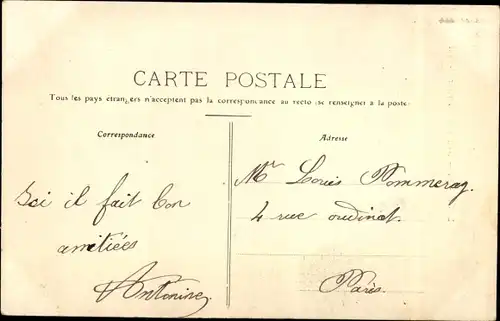 CARTE POSTALE
Tous les pays étrangers n'acceptent pas la correspondance au recto (se renseigner à la poste)
Correspondance
Adresse
Ici il fait bon
amitiées
Antonine
Mr Louis Pommeray
4 rue oudinot
Paris.